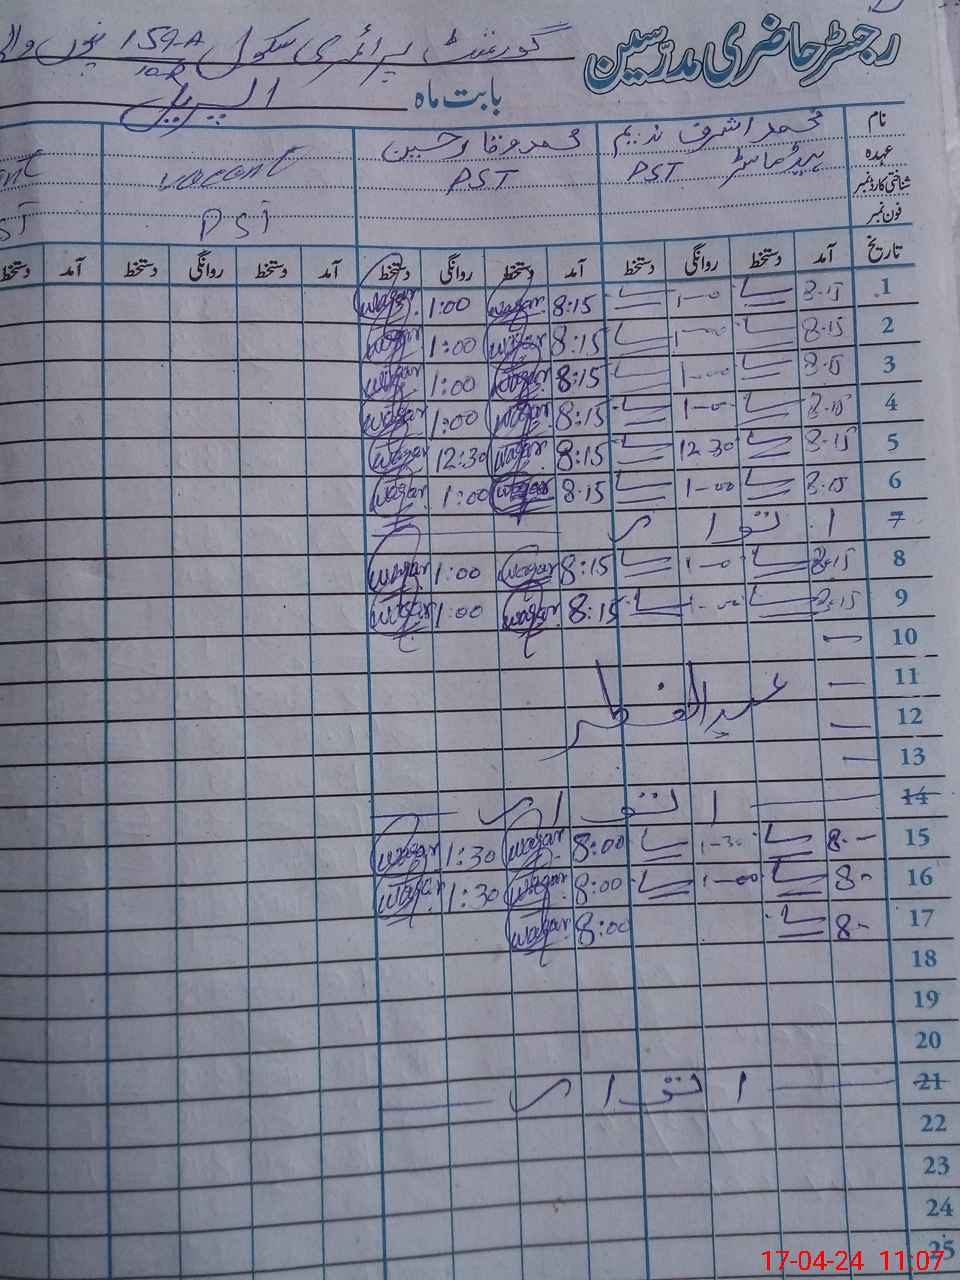 رجسٹر حاضری مدرسین گورنمنٹ پرائمری سکول 159-A
10R
بابت ماہ اپریل
نام محمد اشرف ندیم محمد وقار حسین vacant
عہدہ ہیڈ ماسٹر PST PST PST
شناختی کارڈ نمبر
فون نمبر
تاریخ آمد دستخط روانگی دستخط آمد دستخط روانگی دستخط آمد دستخط روانگی دستخط آمد دستخط
1 8-15 1-00 8:15 waqar 1:00 waqar
2 8-15 1-00 8:15 waqar 1:00 waqar
3 8-15 1-00 8:15 waqar 1:00 waqar
4 8-15 1-00 8:15 waqar 1:00 waqar
5 8-15 12-30 8:15 waqar 12:30 waqar
6 8-15 1-00 8:15 waqar 1:00 waqar
7 اتوار
8 8-15 1-0 8:15 waqar 1:00 waqar
9 8-15 1-00 8:15 waqar 1:00 waqar
10 —
11 — عیدالفطر
12 —
13 —
14 اتوار
15 8-- 1-30 8:00 waqar 1:30 waqar
16 8- 1-00 8:00 waqar 1:30 waqar
17 8- 8:00 waqar
18
19
20
21 اتوار
22
23
24
25
17-04-24 11:07